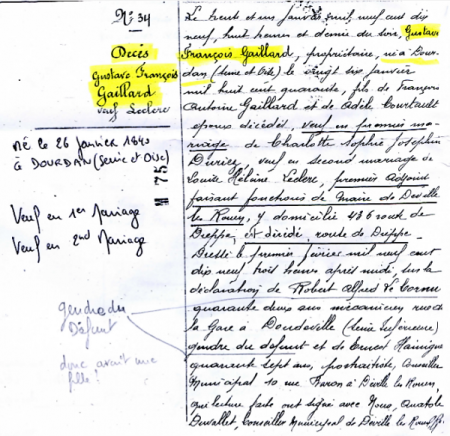 N° 34
Décès
Gustave François
Gaillard
veuf Leclerc
Né le 26 Janvier 1840
à DOURDAN (Seine et Oise)
Veuf en 1er Mariage
Veuf en 2nd Mariage
gendre du
Défunt
donc avait une
fille?
Le trent et un janvier mil neuf cent dix
neuf, huit heures et demie du soir, Gustave
François Gaillard, propriétaire, né à Dour-
dan (Seine et Oise) le vingt six janvier
mil huit cent quarante, fils de François
Antoine Gaillard et de Adèle
époux décédés, veuf en premier ma-
riage de Charlotte Sophie Joséphine
veuf en second mariage de
Louise Hélène Leclerc, premier adjoint
faisant fonctions de Maire de Déville
les Rouen, y domicilié 436 route de
Dieppe, est décédé, route de Dieppe
Dressé le premier février mil neuf cent
dix neuf trois heures après midi, sur la
déclaration de Robert Alfred
quarante deux ans mécanicien rue de
la Gare à Doudeville (Seine Inférieure)
gendre du défunt et de Ernest
quarante sept ans, Conseiller
Municipal 10 rue à Déville les Rouen,
qui lecture faite ont signé avec Nous, Anatole
Duvallet, Conseiller Municipal de Déville les Rouen